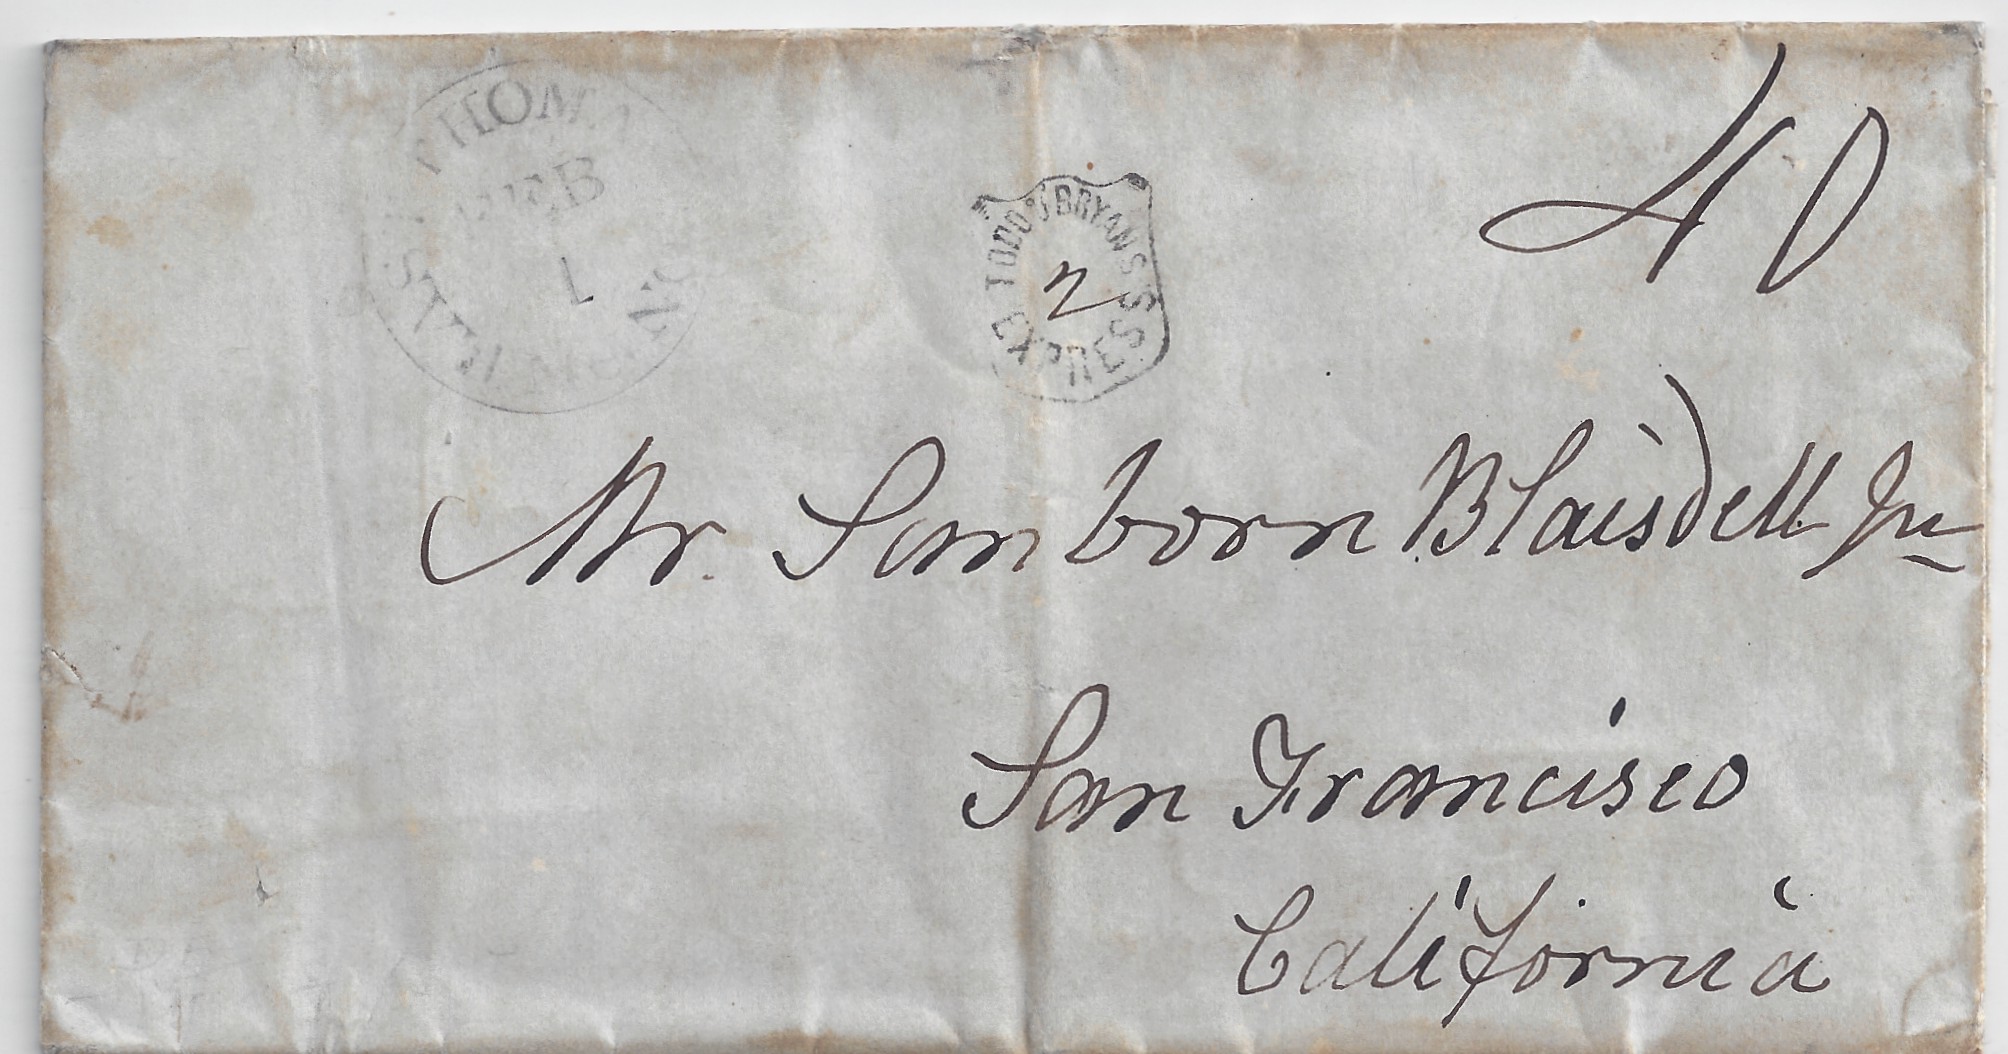 FEB
1
TODD & BRYAN'S
2
40
Mr. Sanborn Blaisdell Jr
San Francisco
California